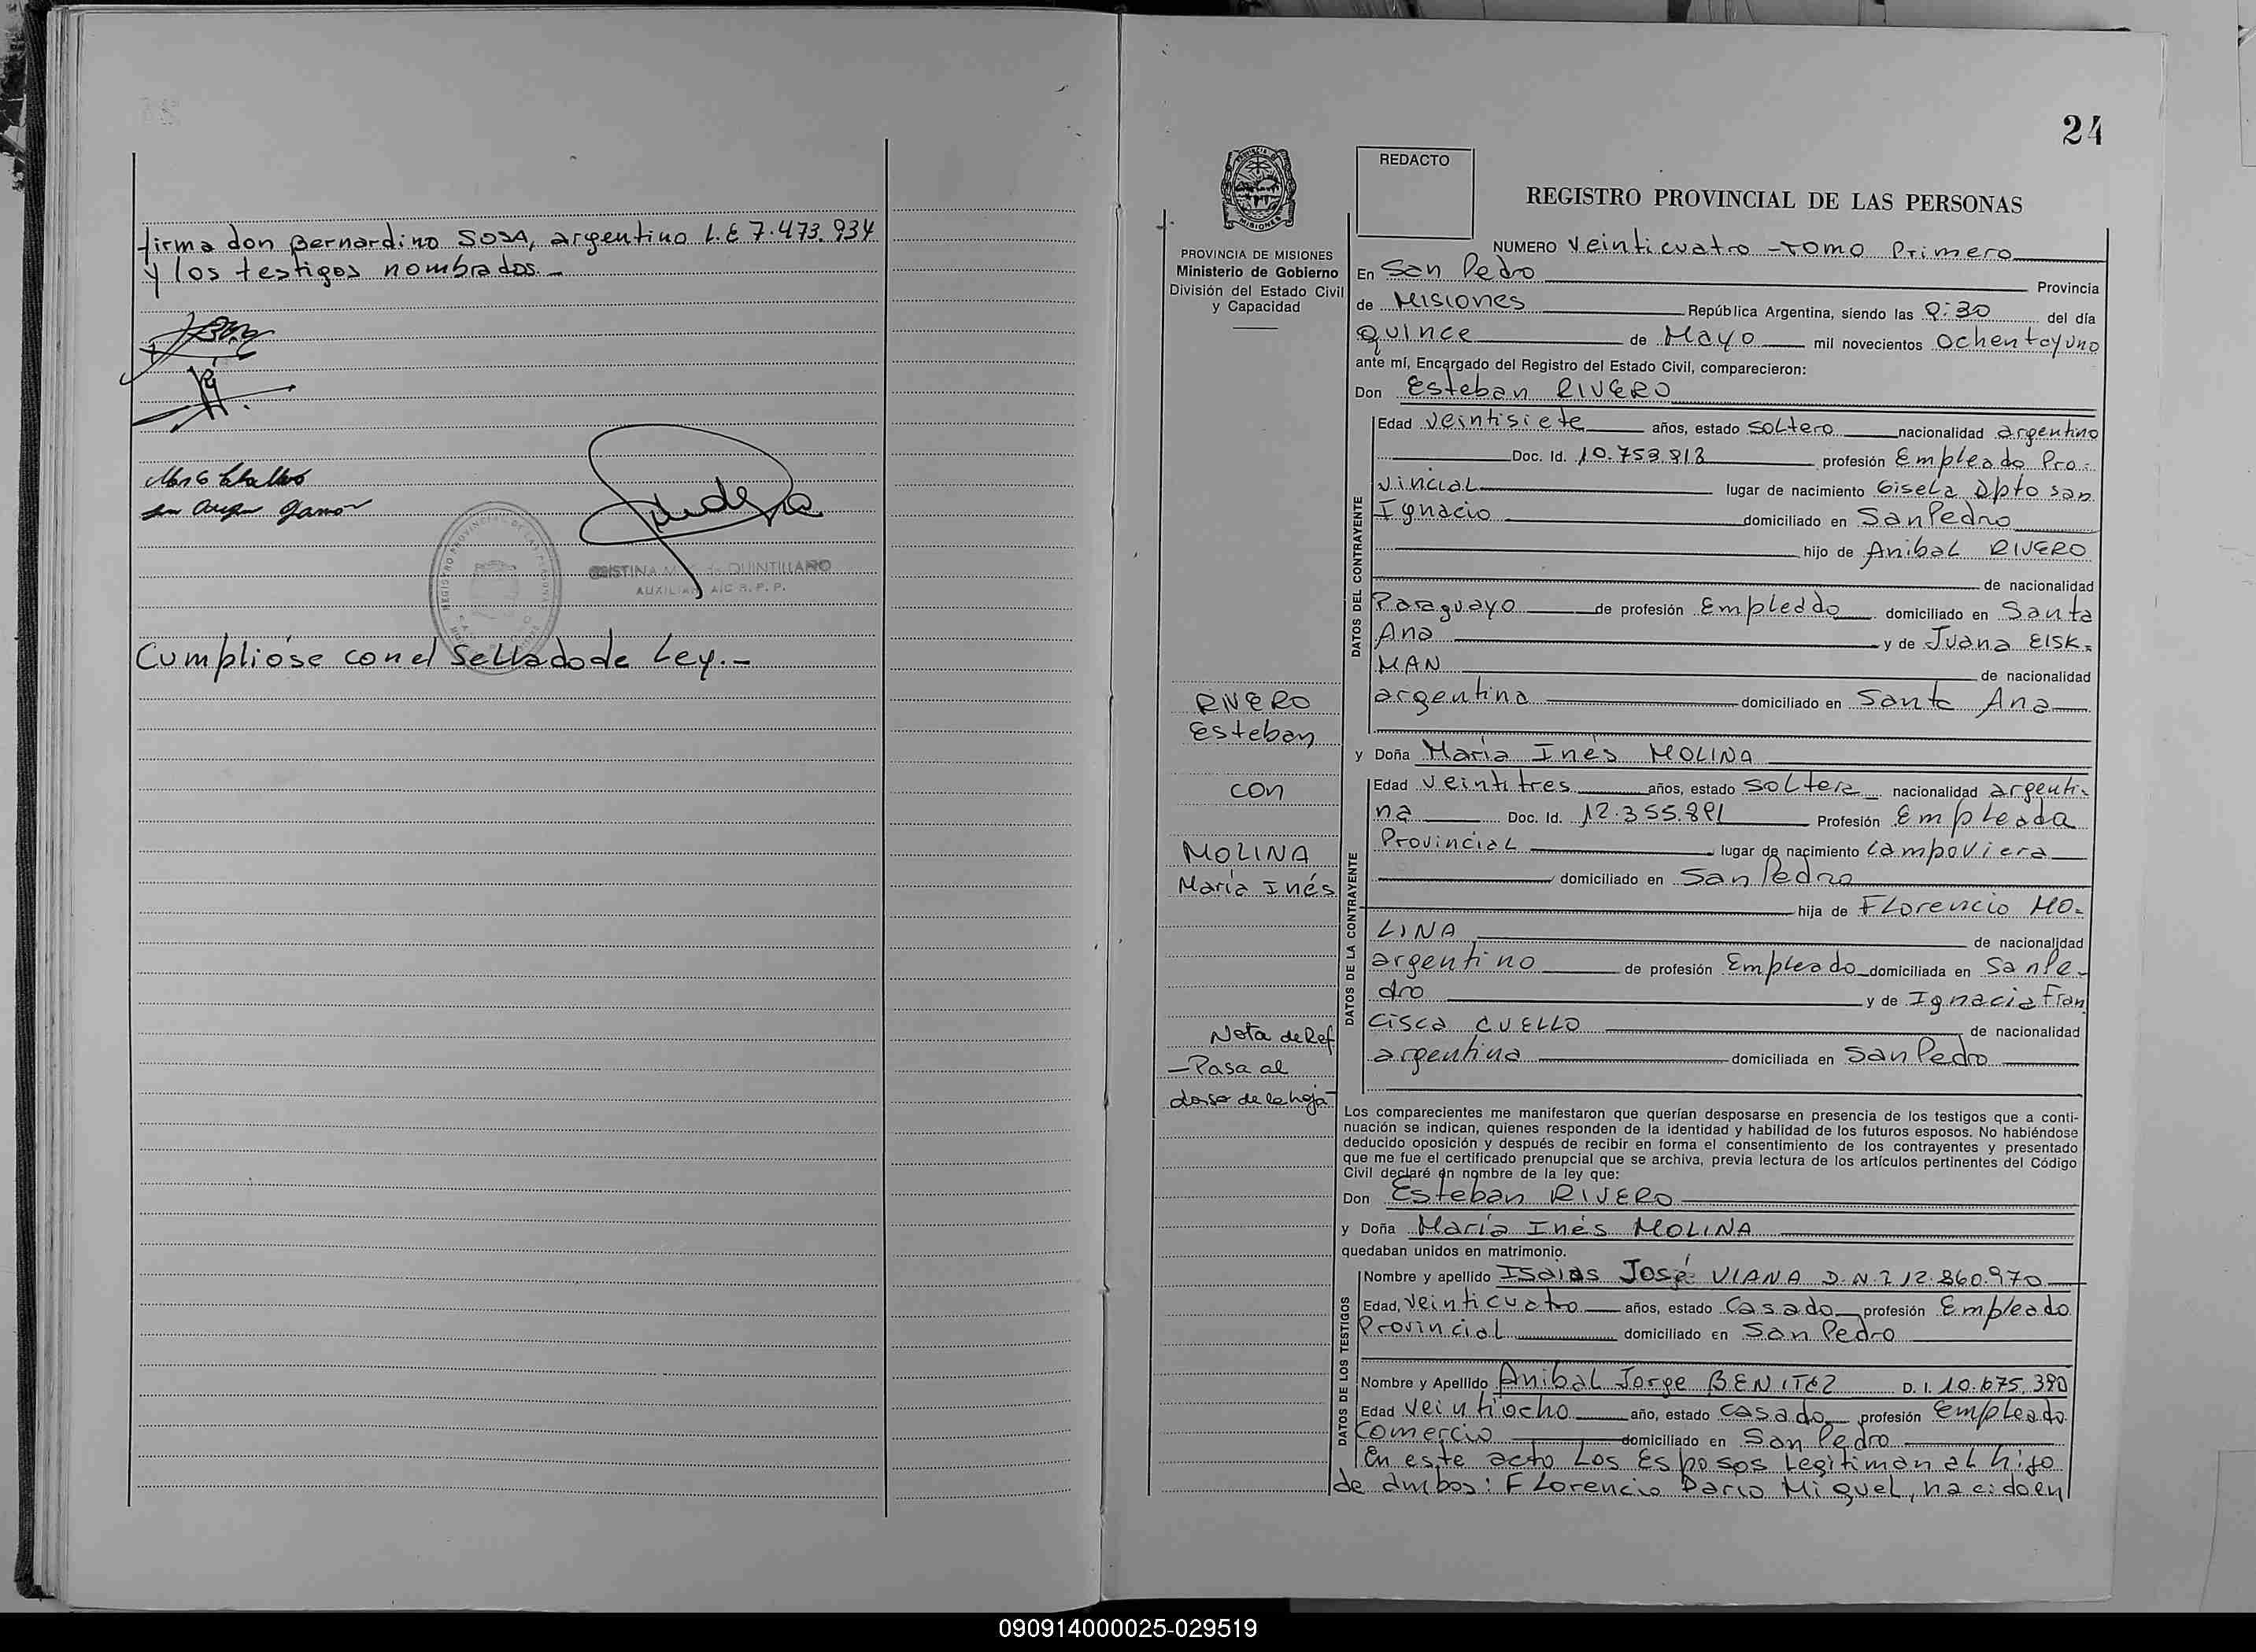 firma don Bernardino SOSA, argentino L.E 7.473.934
y los testigos nombrados.-
CRISTINA M. de QUINTILLANO
AUXILIAR A/C R. P. P.
Cumplióse con el Sellado de Ley.-
24
REDACTO
REGISTRO PROVINCIAL DE LAS PERSONAS
MISIONES
PROVINCIA DE MISIONES
Ministerio de Gobierno
División del Estado Civil
y Capacidad
NUMERO Veinticuatro -Tomo Primero
En San Pedro Provincia
de Misiones República Argentina, siendo las 9:30 del día
quince de Mayo mil novecientos ochentayuno
ante mí, Encargado del Registro del Estado Civil, comparecieron:
Don Esteban RIVERO
DATOS DEL CONTRAYENTE
Edad veintisiete años, estado soltero nacionalidad argentino
Doc. Id. 10.753.813 profesión Empleado Pro-
vincial lugar de nacimiento Gisela Dpto San
Ignacio domiciliado en San Pedro
hijo de Anibal RIVERO
de nacionalidad
Paraguayo de profesión Empleado domiciliado en Santa
Ana y de Juana EISK-
MAN de nacionalidad
argentina domiciliado en Santa Ana
RIVERO
Esteban
con
MOLINA
María Inés
y Doña María Inés MOLINA
DATOS DE LA CONTRAYENTE
Edad veintitres años, estado soltera nacionalidad argenti-
na Doc. Id. 12.355.891 Profesión Empleada
Provincial lugar de nacimiento Campo Viera
domiciliado en San Pedro
hija de Florencio MO-
LINA de nacionalidad
argentino de profesión Empleado domiciliada en San Pe-
dro y de Ignacia Fran
cisca CUELLO de nacionalidad
argentina domiciliada en San Pedro
Nota de Ref
-Pasa al
dorso de la hoja-
Los comparecientes me manifestaron que querían desposarse en presencia de los testigos que a conti-
nuación se indican, quienes responden de la identidad y habilidad de los futuros esposos. No habiéndose
deducido oposición y después de recibir en forma el consentimiento de los contrayentes y presentado
que me fue el certificado prenupcial que se archiva, previa lectura de los artículos pertinentes del Código
Civil declaré en nombre de la ley que:
Don Esteban RIVERO
y Doña María Inés MOLINA
quedaban unidos en matrimonio.
DATOS DE LOS TESTIGOS
Nombre y apellido Isaias José VIANA D.N.I 12.860.970
Edad, veinticuatro años, estado Casado profesión Empleado
Provincial domiciliado en San Pedro
Nombre y Apellido Anibal Jorge BENITEZ D. I. 10.675.390
Edad veintiocho año, estado casado profesión Empleado
Comercio domiciliado en San Pedro
En este acto los Esposos Legitiman al hijo
de ambos: Florencio Dario Miguel, nacido en
090914000025-029519